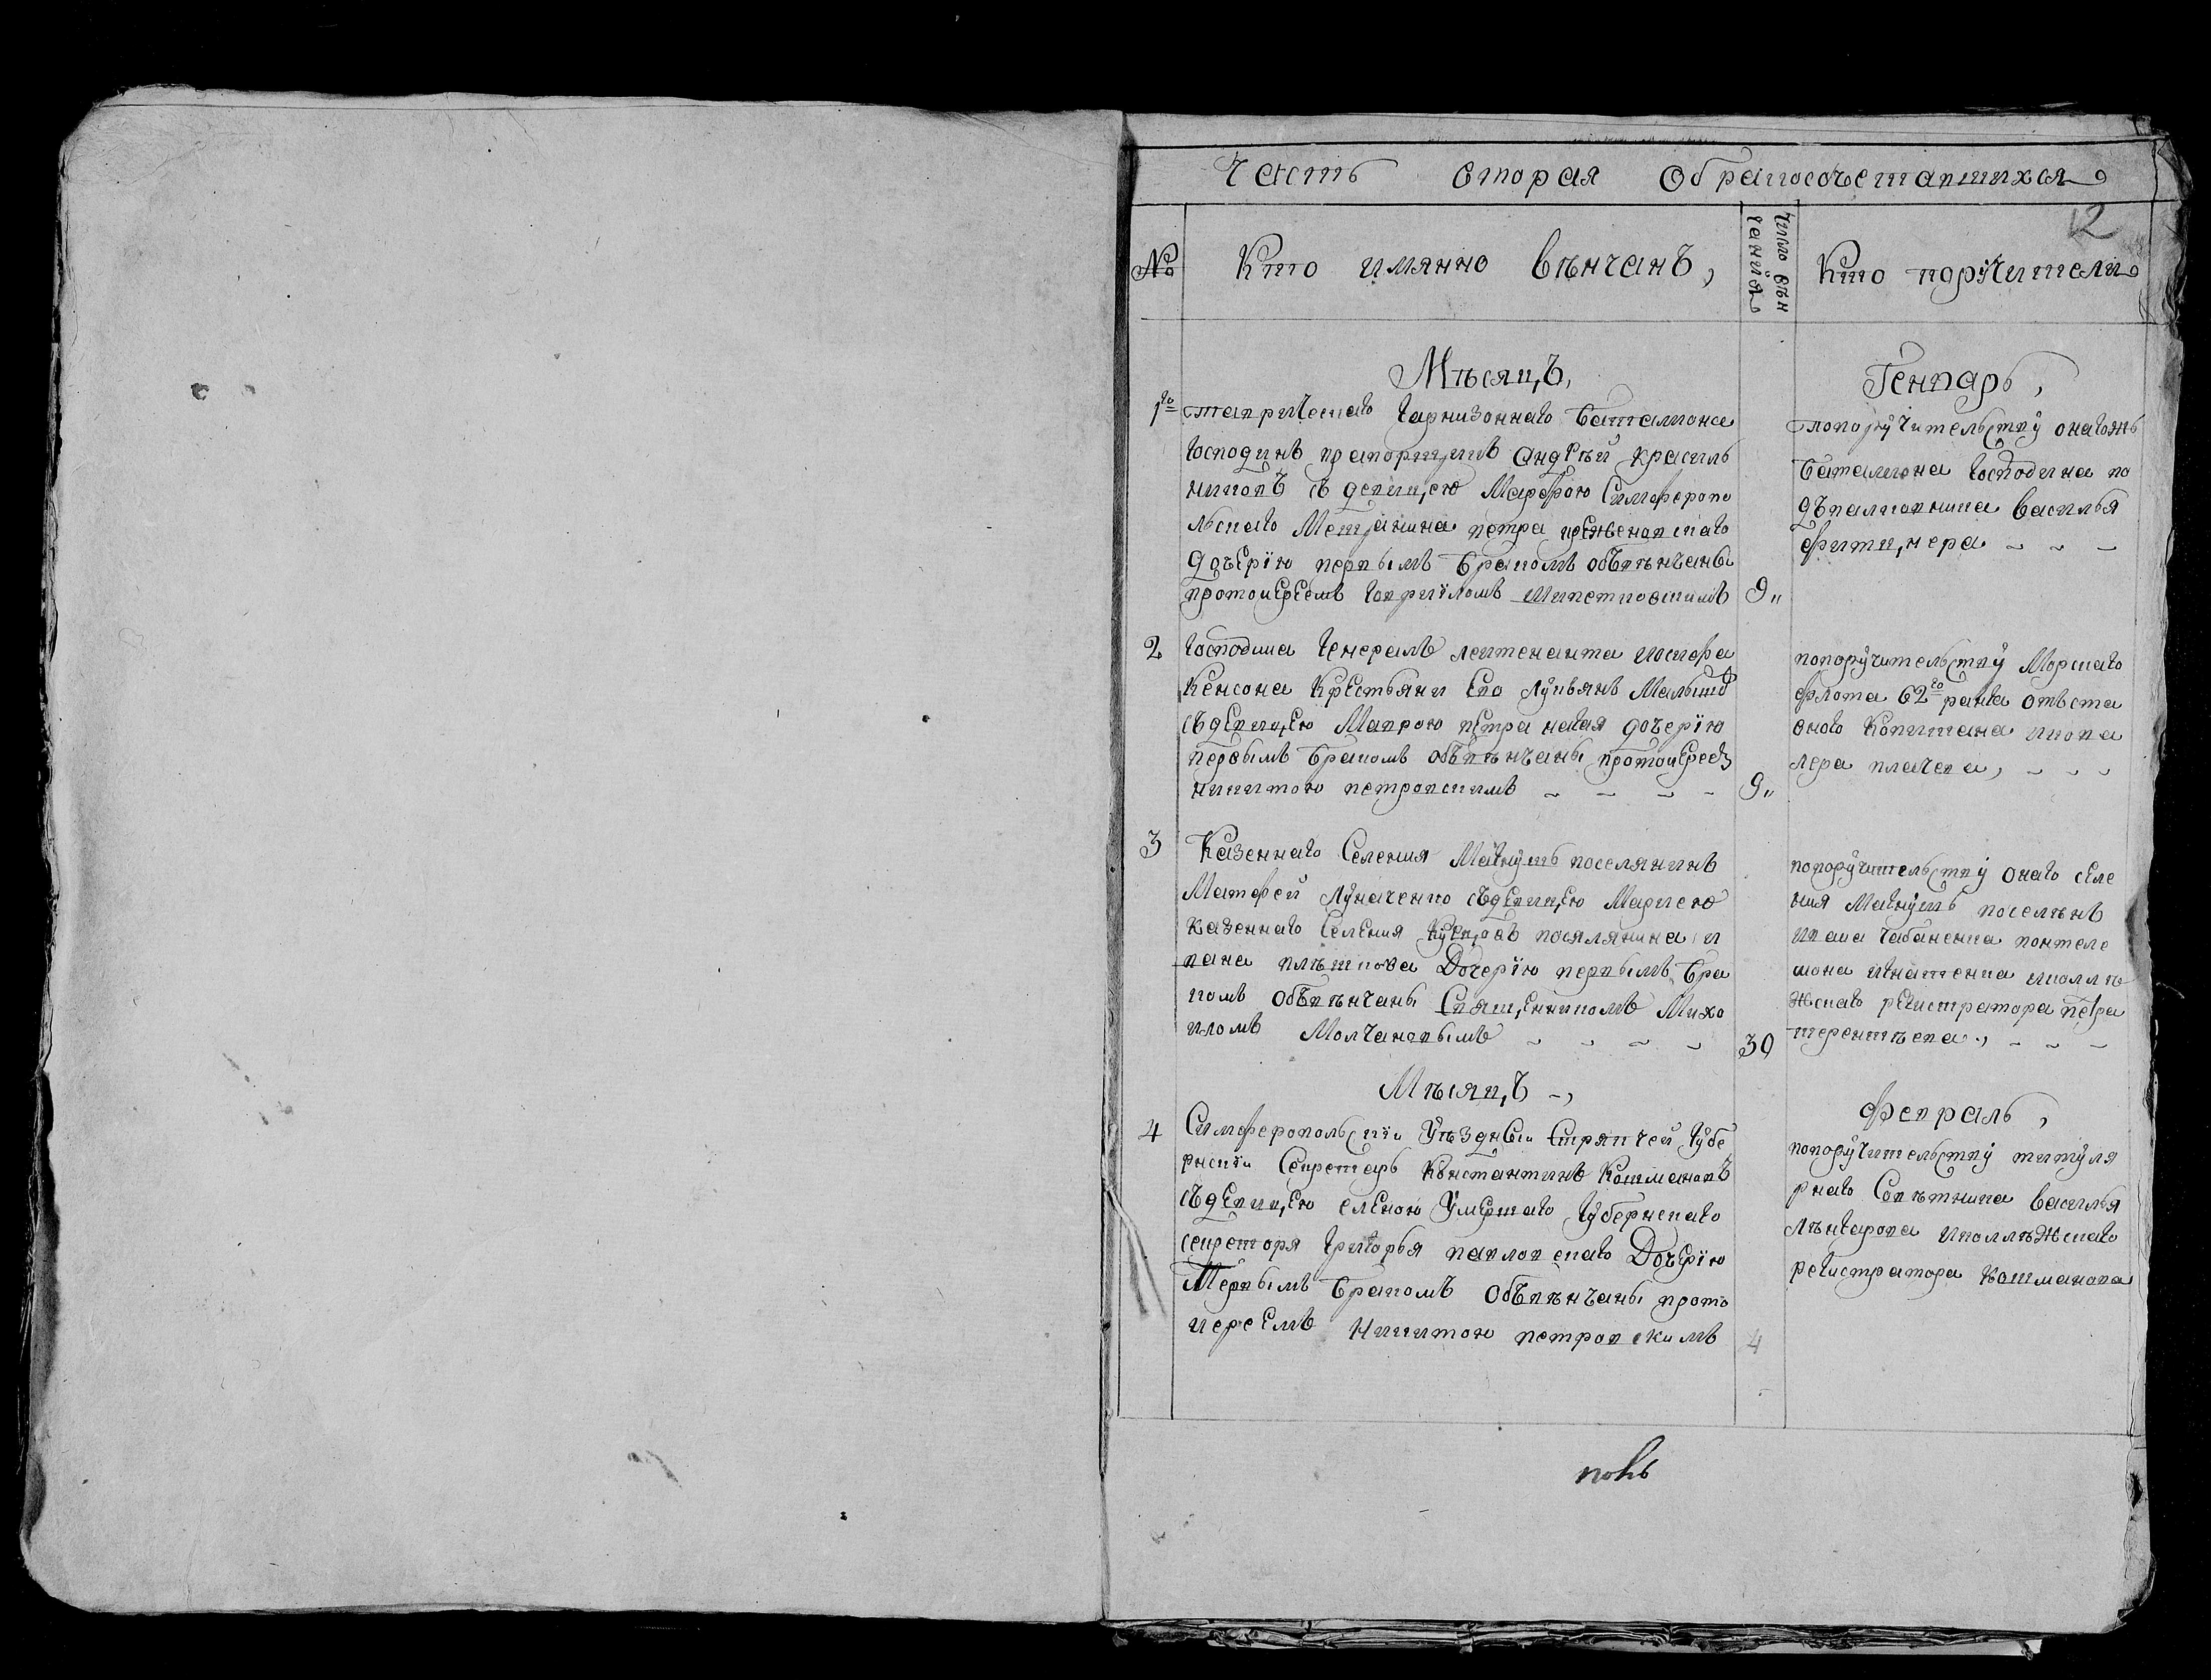 Часть вторая О бракосочетавшихся
12
№
Кто имянно вѣнчанъ,
Число вѣн
чания
Кто поручители
Мѣсяцъ,
Генварь,
1го
таврическаго гарнизоннаго баталиона
господинъ прапорщикъ андрѣй красиль
никовъ съ девицею Марфою Симферопо
льскаго Мещанина петра
дочерїю первымъ бракомъ обвѣнчаны
протоиереемъ гавриїломъ
9„
попоручительству онагожъ
баталиона господина по
дполковника василья
фитцнера
2
господина генералъ леитенанта иосифа
Кенсона Крестьянин его лукьянъ Малыш
съдевицею Маврою петра дочерїю
первымъ бракомъ обвѣнчаны протоиерее
никитою петровскимъ
9„
попоручительству Морскаго
флота 62го ранга отвста
вного Капитана икава
лера плачева,
3
Казеннаго Селения Мангушъ поселянинъ
Матфей Луначенко съдевицею Мариею
казеннаго Селения поселянина и
вана плѣшкова Дочерїю первымъ бра
комъ обвѣнчаны Священникомъ Михо
иломъ Молчановымъ
30
попоручительству онаго селе
ния Мангушъ поселянъ
ивана чабаненка понтеле
мона игнатенка иколлѣ
жскаго регистратора петра
терентьева,
Мѣсяцъ
Февраль,
4
Симферопольскїи Уѣздныи Стряпчей губе
рнскїи Секретарь Константинъ Кошмановъ
съдевицею еленою Умершаго губернскаго
секретаря григорья павловскаго Дочерїю
Первымъ бракомъ обвѣнчаны прото
иереемъ Никитою петровскимъ
4
попоручительству титуля
рнаго Советника василья
иколлѣжскаго
регистратора кошманова